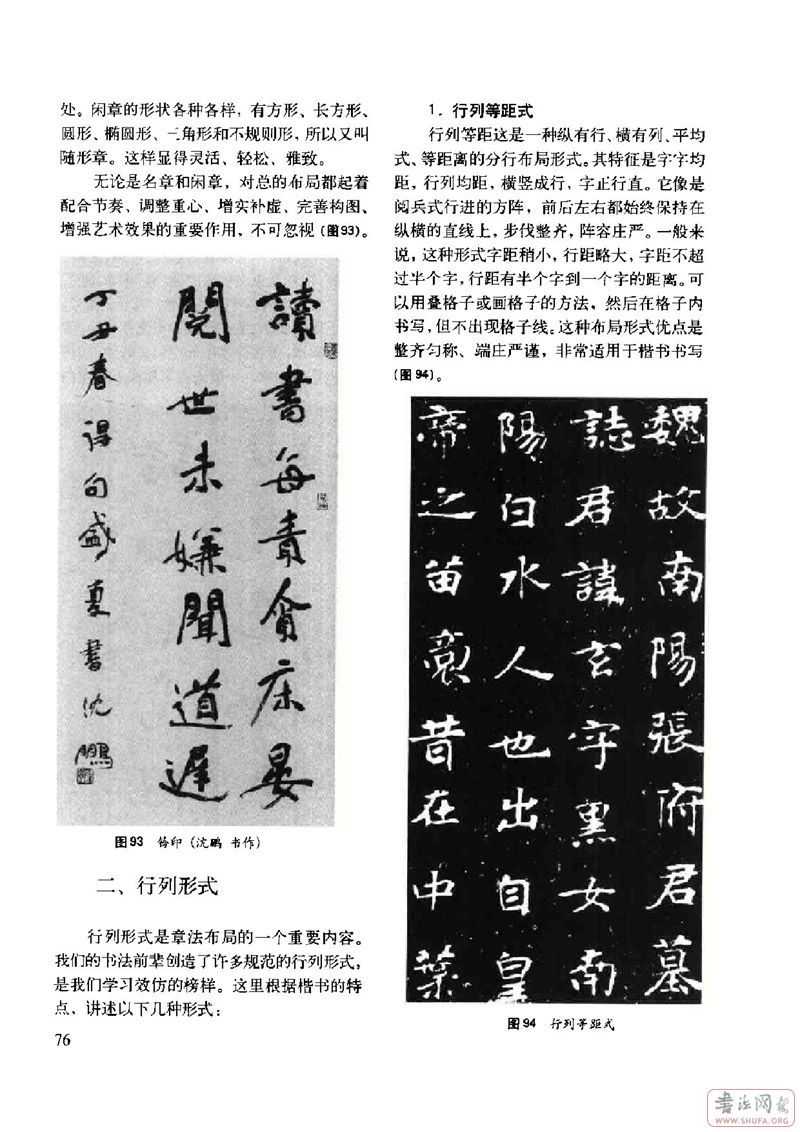 处。闲章的形状各种各样，有方形、长方形、
圆形、椭圆形、三角形和不规则形，所以又叫
随形章。这样显得灵活、轻松、雅致。
无论是名章和闲章，对总的布局都起着
配合节奏、调整重心、增实补虚、完善构图、
增强艺术效果的重要作用，不可忽视（图93）。
讀書每責貪床晏
閱世未嫌聞道遲
丁丑春得句盛夏書沈鵬
图93 钤印（沈鹏 书作）
二、行列形式
行列形式是章法布局的一个重要内容。
我们的书法前辈创造了许多规范的行列形式，
是我们学习效仿的榜样。这里根据楷书的特
点，讲述以下几种形式：
76
1．行列等距式
行列等距这是一种纵有行、横有列、平均
式、等距离的分行布局形式。其特征是字字均
距，行列均距，横竖成行，字正行直。它像是
阅兵式行进的方阵，前后左右都始终保持在
纵横的直线上，步伐整齐，阵容庄严。一般来
说，这种形式字距稍小，行距略大，字距不超
过半个字，行距有半个字到一个字的距离。可
以用叠格子或画格子的方法，然后在格子内
书写，但不出现格子线。这种布局形式优点是
整齐匀称、端庄严谨，非常适用于楷书书写
（图94）。
魏故南陽張府君墓
誌君諱玄字黑女南
陽白水人也出自皇
帝之苗裔昔在中葉
图94 行列等距式
書法网报
WWW.SHUFA.ORG